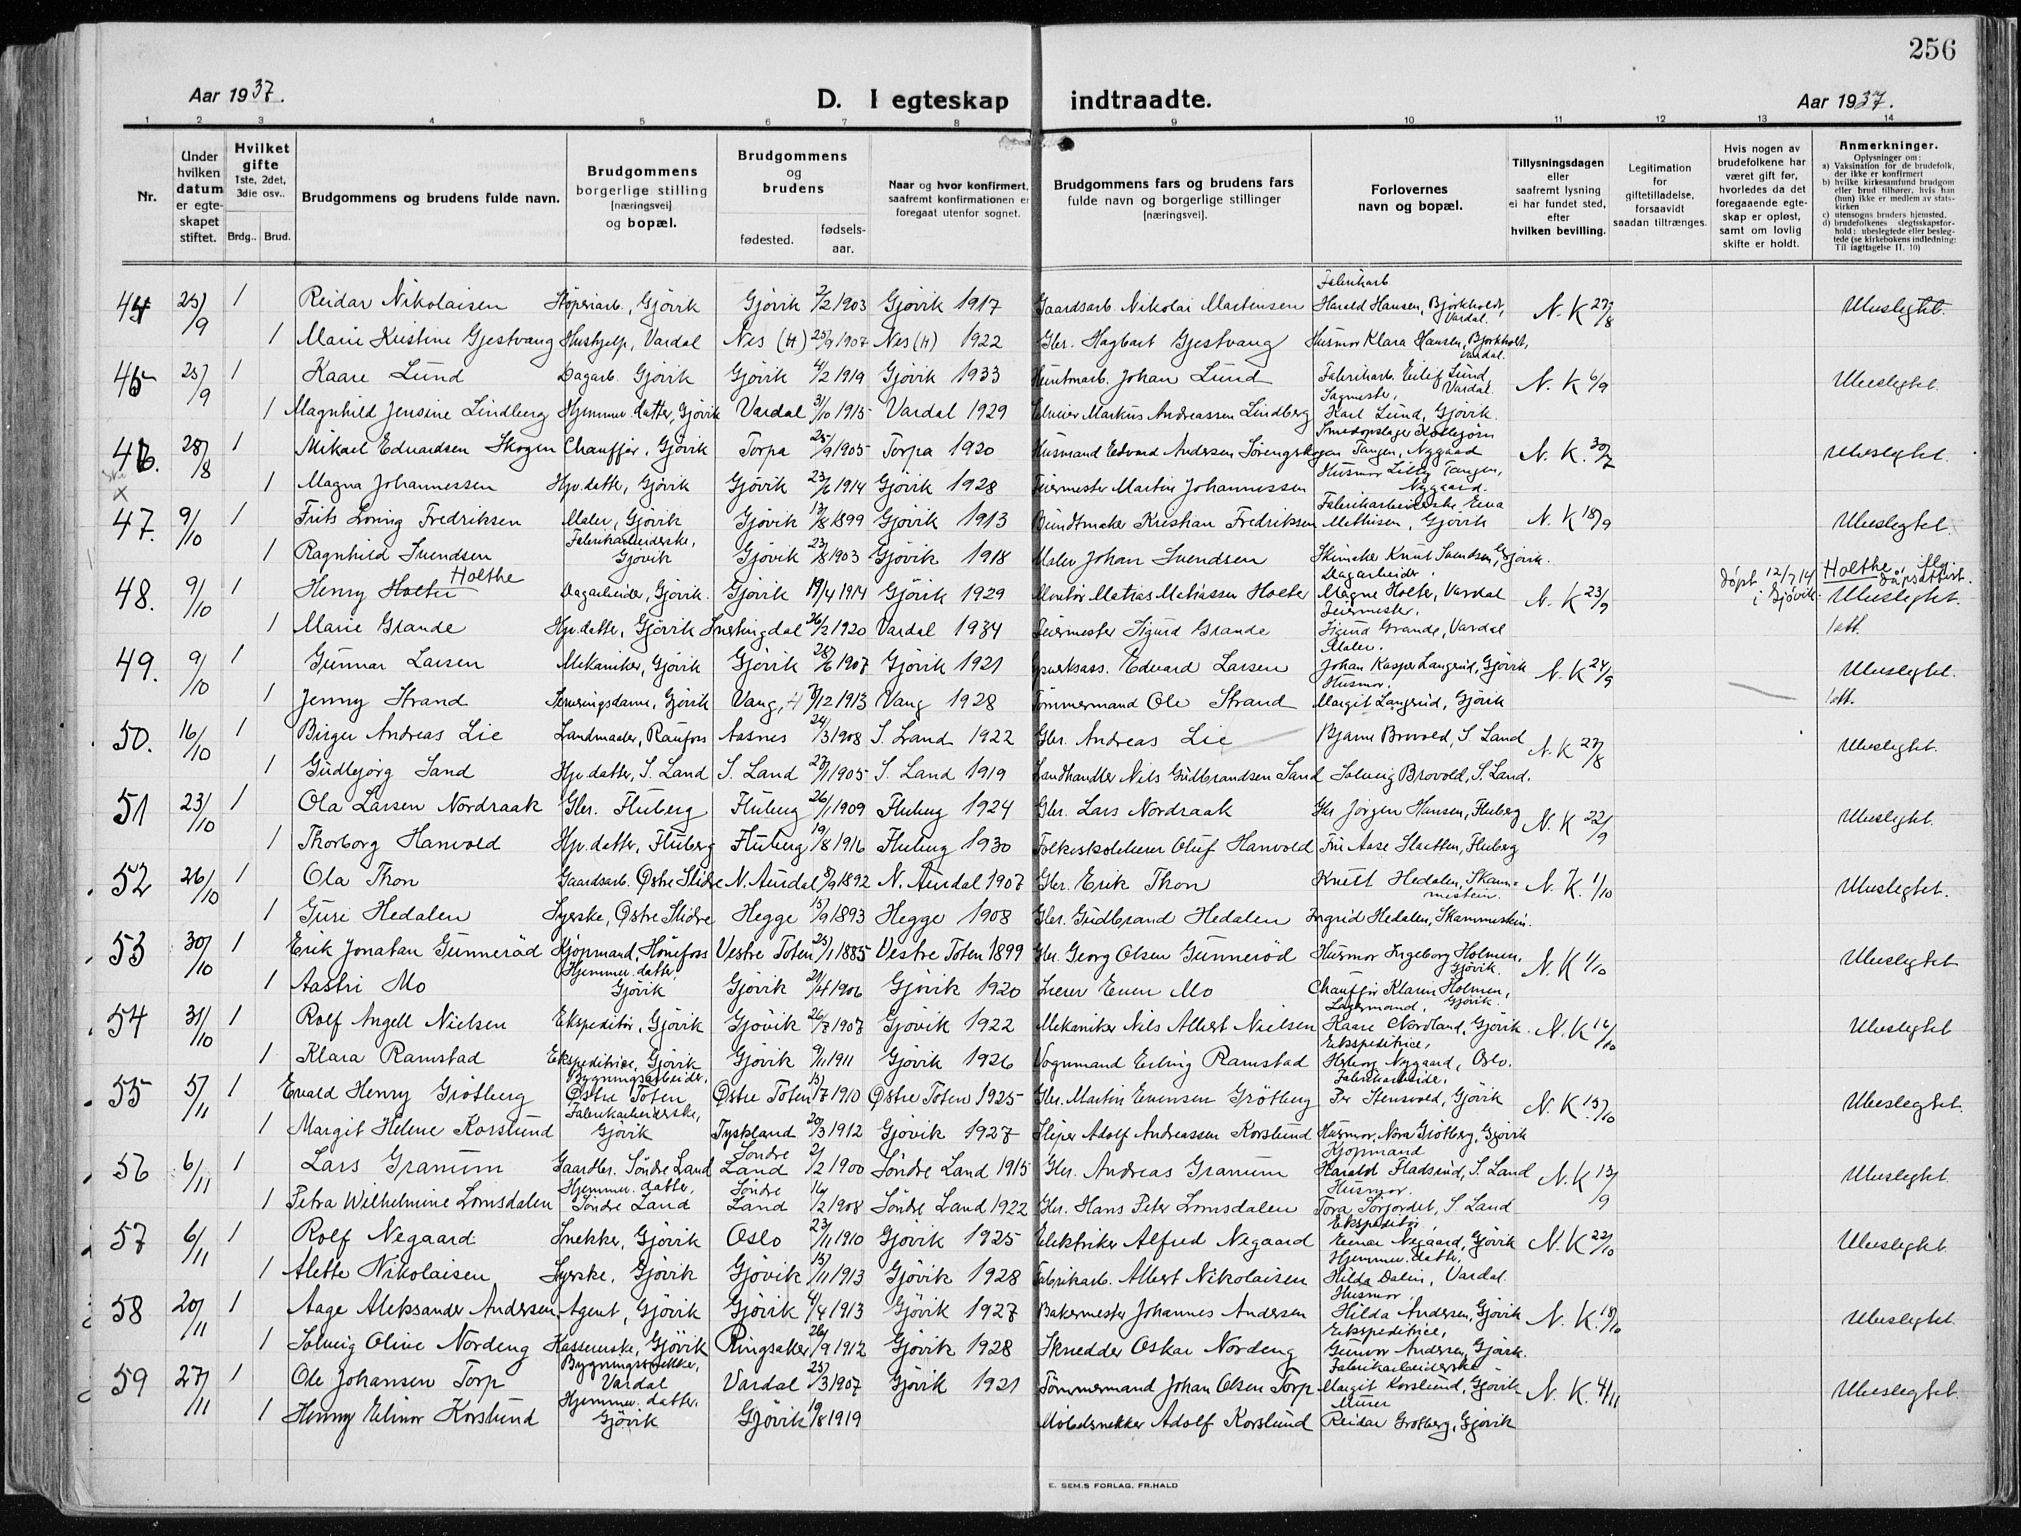 256
Aar 1937.
D. I egteskap indtraadte.
Aar 1937.
1 2 3 4 5 6 7 8 9 10 11 12 13 14
Nr.
Under hvilken datum er egteskapet stiftet.
Hvilket gifte 1ste, 2det, 3die osv..
Brdg.. Brud.
Brudgommens og brudens fulde navn.
Brudgommens borgerlige stilling [næringsvei] og bopæl.
Brudgommens og brudens
fødested.
fødselsaar.
Naar og hvor konfirmert, saafremt konfirmationen er foregaat utenfor sognet.
Brudgommens fars og brudens fars fulde navn og borgerlige stillinger [næringsvei].
Forlovernes navn og bopæl.
Tillysningsdagen eller saafremt lysning ei har fundet sted, efter hvilken bevilling.
Legitimation for giftetilladelse, forsaavidt saadan tiltrænges.
Hvis nogen av brudefolkene har været gift før, hvorledes da det foregaaende egteskap er opløst, samt om lovlig skifte er holdt.
Anmerkninger.
Oplysninger om:
a) Vaksination for de brudefolk, der ikke er konfirmert
b) hvilke kirkesamfund brudgom eller brud tilhører, hvis han (hun) ikke er medlem av statskirken
c) utensogns bruders hjemsted,
d) brudefolkenes slegtsskapsforhold: ubeslegtede eller beslegtede (se kirkebokens indledning: Til iagttagelse II. 10)
44 25/9 1 Reidar Nikolaisen Støperiarb., Gjøvik Gjøvik 2/2 1903 Gjøvik 1917 Gaardsarb. Nikolai Martensen Fabrikarb Harald Hansen, Bjørkholdt, Vardal. N. K 27/8 Ubeslegtet.
1 Marie Kristine Gjestvang Hushjelp, Vardal Nes (H) 25/9 1907 Nes (H) 1922 Gbr. Hagbart Gjestvang Husmor Klara Hansen, Bjørkholt, Vardal.
45 25/9 1 Kaare Lund Dagarb. Gjøvik Gjøvik 4/2 1919 Gjøvik 1933 Johan Lund Fabrikarb. Eilif Lund, Vardal. N. K 6/9 Ubeslegtet.
1 Magnhild Jensine Lindberg Hjemmev. datter, Gjøvik Vardal 31/10 1915 Vardal 1929 Markus Andreassen Lindberg Sagmester, Karl Lund, Gjøvik.
46. 28/8 1 Mikael Edvardsen Skogen Chauffør, Gjøvik Torpa 25/9 1905 Torpa 1920 Husmand Edvard Andersen Sørengskogen Tangen, Nygaard N. K. 30/7 Ubeslegtet.
1 Magna Johannessen Hjv. datter, Gjøvik Gjøvik 23/6 1914 Gjøvik 1928 Feiermester Martin Johannessen Husmor Lilly Tangen, Nygaard.
47. 9/10 1 Frits Loring Fredriksen Maler, Gjøvik Gjøvik 13/8 1899 Gjøvik 1913 Buntmaker Kristian Fredriksen Fabrikarbeiderske Ewa Mathisen, Gjøvik N. K 18/9 Ubeslegtet.
1 Ragnhild Svendsen Fabrikarbeiderske, Gjøvik Gjøvik 23/8 1903 Gjøvik 1918 Maler Johan Svendsen Skimaker Knut Svendsen, Gjøvik.
48. 9/10 1 Henry Holter Holthe Dagarbeider, Gjøvik. Gjøvik 19/4 1914 Gjøvik 1929 Montør Matias Matiassen Holter Dagarbeider, Magne Holter, Vardal N. K 23/9 døpt 12/7 14 i Gjøvik. Holthe, ilfg. dåpsattest. Ubeslegtet.
1 Marie Grande Hjv. datter, Gjøvik Snertingdal 26/2 1920 Vardal 1934 Feiermester Sigurd Grande Feiermester, Sigurd Grande, Vardal 1 att.
49. 9/10 1 Gunnar Larsen Mekaniker, Gjøvik Gjøvik 28/6 1907 Gjøvik 1921 Edvard Larsen Maler, Johan Kasper Langerud, Gjøvik N. K 24/9 Ubeslegtet.
1 Jenny Strand Serveringsdame, Gjøvik Vang, H 7/12 1913 Vang 1928 Tømmermand Ole Strand Husmor, Margit Langerud, Gjøvik 1 att.
50. 16/10 1 Birger Andreas Lie Landmaaler, Raufoss Aasnes 24/3 1908 S. Land 1922 Gbr. Andreas Lie Bjarne Brovold, S. Land N. K 27/8 Ubeslegtet.
1 Gudbjørg Sand Hjv. datter, S. Land S. Land 23/11 1905 S. Land 1919 Landhandler Nils Gudbrandsen Sand Solveig Brovold, S. Land.
51 23/10 1 Ola Larsen Nordraak Gbr. Fluberg Fluberg 26/1 1909 Fluberg 1924 Gbr. Lars Nordraak Gbr Jørgen Hansen, Fluberg N. K 22/9 Ubeslegtet.
1 Thorborg Hanvold Hjv. datter, Fluberg Fluberg 19/8 1916 Fluberg 1930 Folkeskolelærer Oluf Hanvold Fru Aase Slaatten, Fluberg
52 26/10 1 Ola Thon Gaardsarb. Østre Slidre N. Aurdal 8/9 1892 N. Aurdal 1907 Gbr. Erik Thon Knut Hedalen, Skammestein. N. K. 1/10 Ubeslegtet.
1 Guri Hedalen Syerske, Østre Slidre Hegge 15/9 1893 Hegge 1908 Gbr. Gudbrand Hedalen Ingrid Hedalen, Skammestein.
53 30/10 1 Erik Jonatan Gunnerød Kjøpmand, Hønefoss Vestre Toten 25/1 1885 Vestre Toten 1899 Gbr. Georg Olsen Gunnerød Husmor Ingeborg Holmen, Gjøvik. N. K 1/10 Ubeslegtet
1 Aastri Mo Hjemmev. datter, Gjøvik Gjøvik 21/4 1906 Gjøvik 1920 Lærer Even Mo Chauffør Klarin Holmen, Gjøvik.
54 31/10 1 Rolf Angell Nielsen Ekspeditør, Gjøvik Gjøvik 26/7 1907 Gjøvik 1922 Mekaniker Nils Albert Nielsen Lagermand, Kaare Nordland, Gjøvik N. K 16/10 Ubeslegtet
1 Klara Ramstad Ekspeditrice, Gjøvik Gjøvik 9/11 1911 Gjøvik 1926 Vognmand Erling Ramstad Ekspeditrice, Herborg Nygaard, Oslo.
55 5/11 1 Evald Henry Grøtberg Bygningsarbeider, Østre Toten Østre Toten 15/7 1910 Østre Toten 1925 Gbr. Martin Evensen Grøtberg Fabrikarbeider, Per Stensvold, Gjøvik N. K. 15/10 Ubeslegtet.
1 Margit Helene Korslund Fabrikarbeiderske, Gjøvik Tyskland 20/3 1912 Gjøvik 1927 Sliper Adolf Andreassen Korslund Husmor, Nora Grøtberg, Gjøvik
56 6/11 1 Lars Granum Gaardbr. Søndre Land Søndre Land 2/2 1900 Søndre Land 1915 Gbr. Andreas Granum Kjøpmand Harald Fladsrud, S. Land N. K 13/9 Ubeslegtet.
1 Petra Wilhelmine Lomsdalen Hjemmev. datter, Søndre Land Søndre Land 16/2 1908 Søndre Land 1922 Gbr. Hans Peter Lomsdalen Husmor. Tora Sørjordet, S. Land
57 6/11 1 Rolf Negaard Snekker, Gjøvik Oslo 23/11 1910 Gjøvik 1925 Elektriker Alfred Negaard Ekspeditør, Einar Negaard, Gjøvik N. K 22/10 Ubeslegtet.
1 Alette Nikolaisen Syerske, Gjøvik Gjøvik 15/11 1913 Gjøvik 1928 Fabrikarb. Albert Nikolaisen Hjemmev. datter, Hilda Dalen, Vardal.
58 20/11 1 Aage Aleksander Andersen Agent, Gjøvik Gjøvik 4/4 1913 Gjøvik 1927 Bakermester Johannes Andersen Husmor, Hilda Andersen, Gjøvik N. K. 18/10 Ubeslegtet.
1 Solveig Olive Nordeng Kassererske, Gjøvik Ringsaker 26/9 1912 Gjøvik 1928 Skredder Oskar Nordeng Ekspeditrice, Gunvor Andersen, Gjøvik.
59 27/11 1 Ole Johansen Torp Bygningssnekker, Vardal Vardal 25/3 1907 Gjøvik 1921 Tømmermand Johan Olsen Torp Fabrikarbeiderske Margit Korslund, Gjøvik N. K. 4/11 Ubeslegtet.
1 Henny Elinor Korslund Hjemmev. datter. Gjøvik Gjøvik 19/8 1919 Møbelsnekker Adolf Korslund Murer Reidar Grøtberg, Gjøvik
E. SEM.S FORLAG, FR.HALD